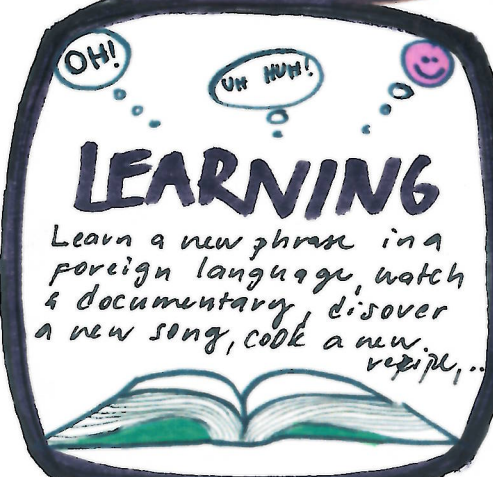 OH!
UH HUH!
LEARNING
Learn a new phrase in a
foreign language, watch
a documentary, disover
a new song, cook a new
recipe,..